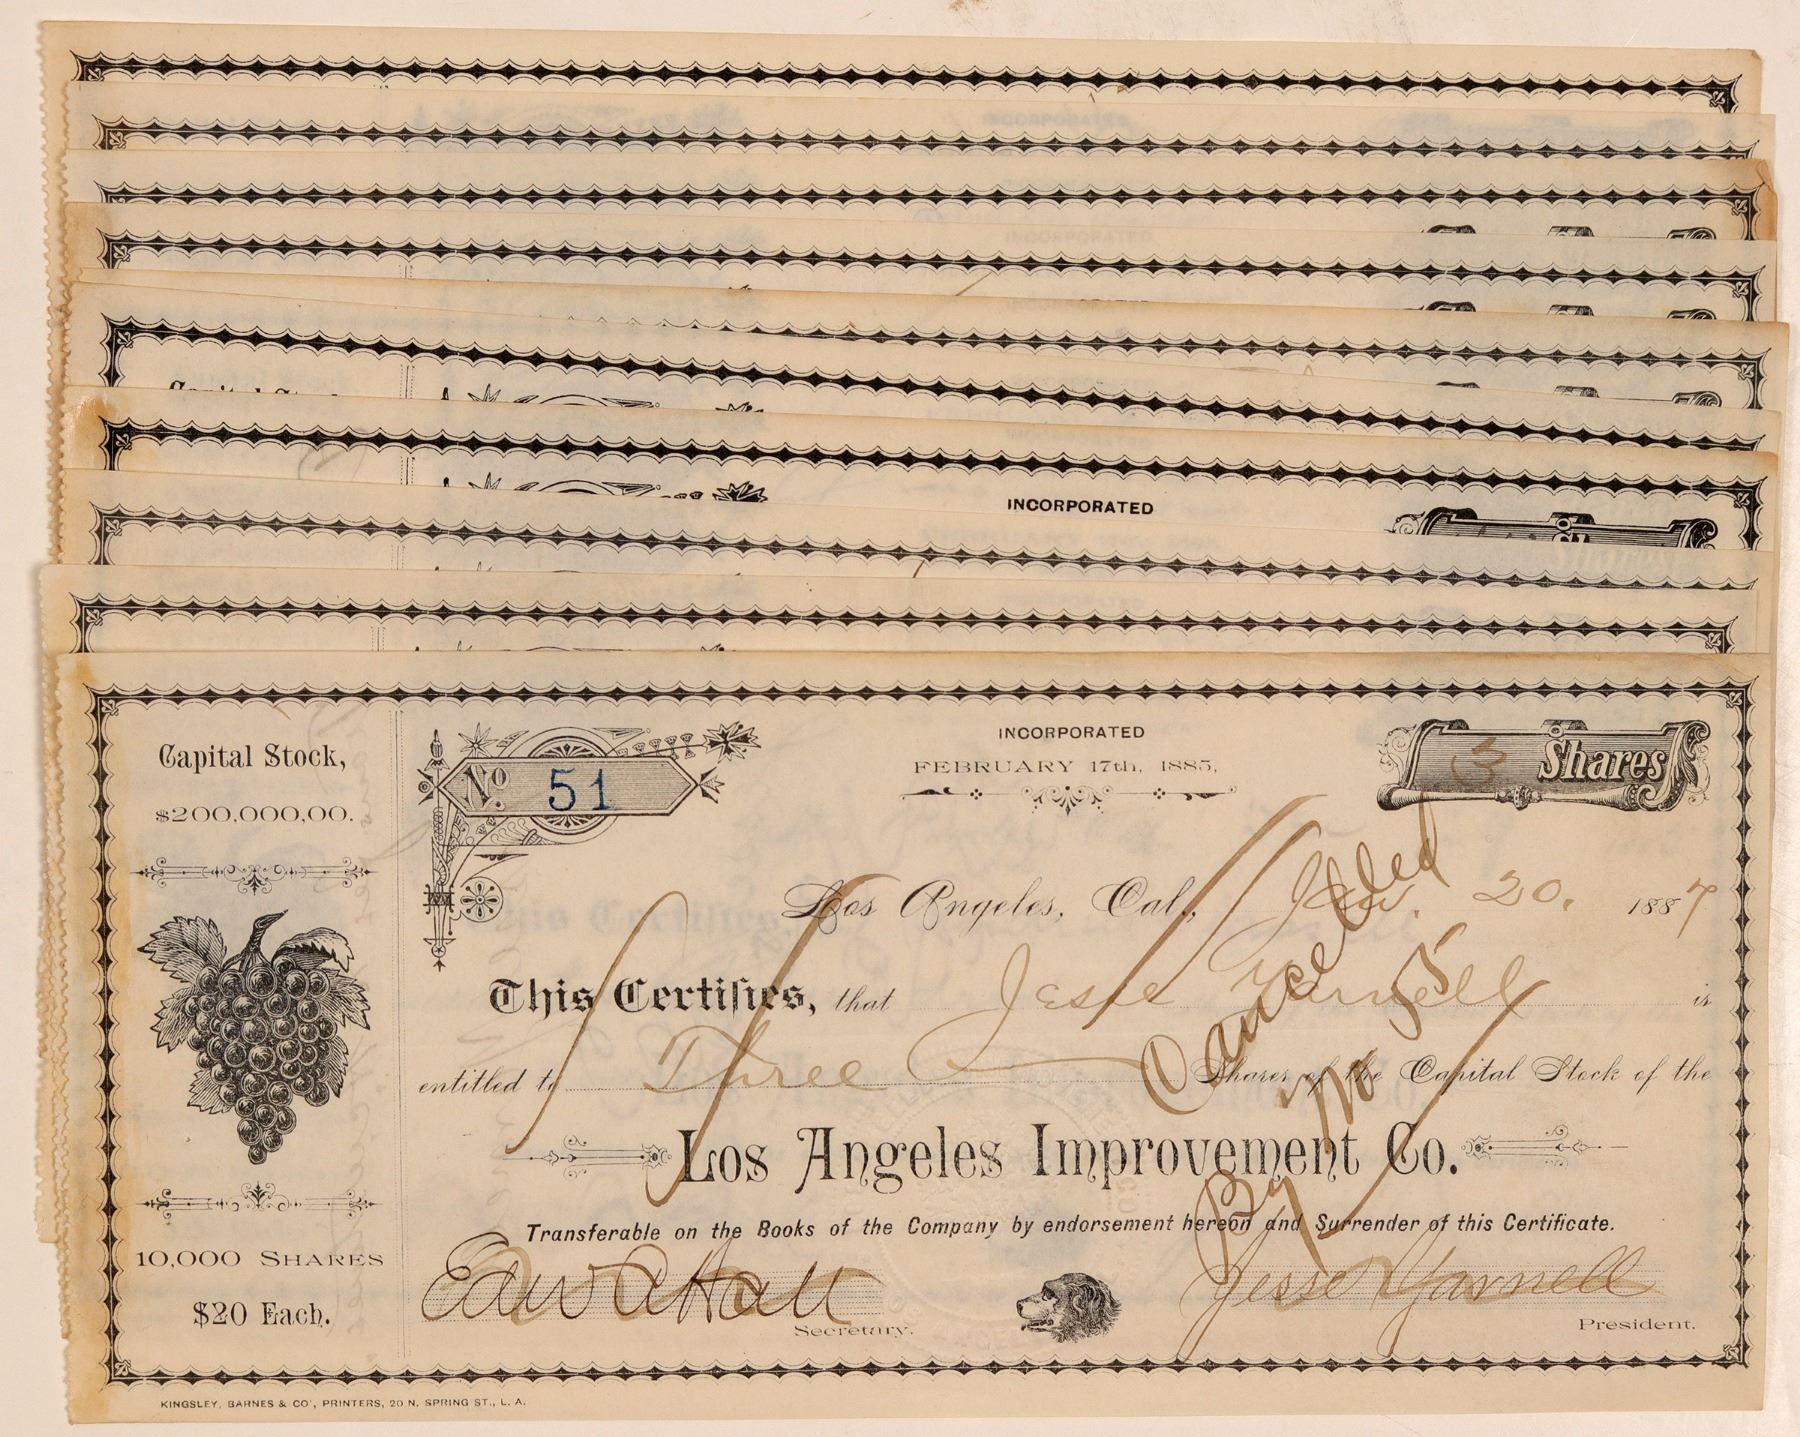 INCORPORATED
Capital Stock,
$200,000,00.
10,000 SHARES
$20 Each.
No. 51
INCORPORATED
FEBRUARY 17th, 1885,
3 Shares
Los Angeles, Cal., Jan. 20. 1887
This Certifies, that Jesse Yarnell is
entitled to Three Shares of the Capital Stock of the
Los Angeles Improvement Co.
Transferable on the Books of the Company by endorsement hereon and Surrender of this Certificate.
Edw A Hall
Secretary.
Jesse Yarnell
President.
Cancelled
By No 5
KINGSLEY, BARNES & CO', PRINTERS, 20 N. SPRING ST., L. A.